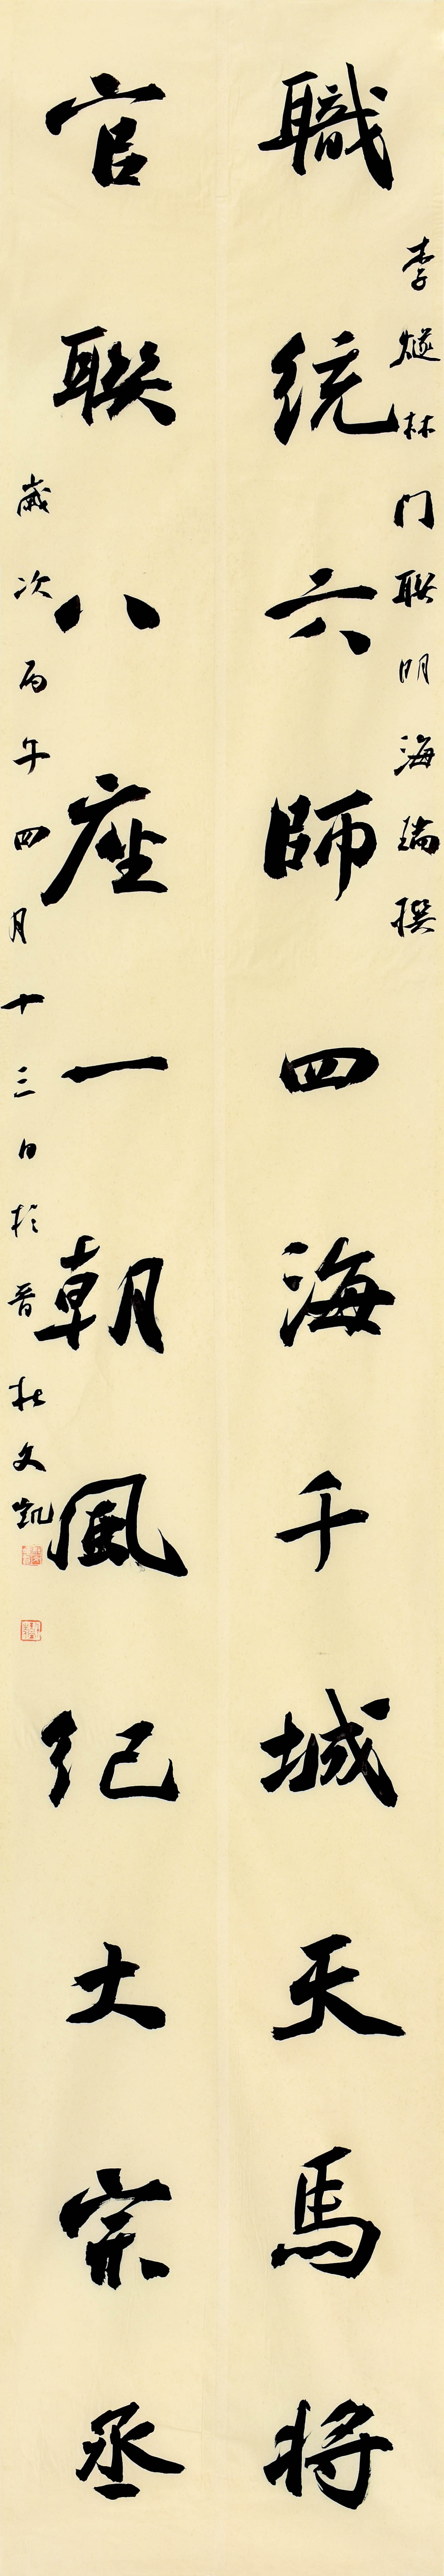 李燧林门联明海瑞撰
職统六師四海千城天馬将
官联八座一朝風纪大宗丞
歲次丙午四月十三日於晋杜文凯